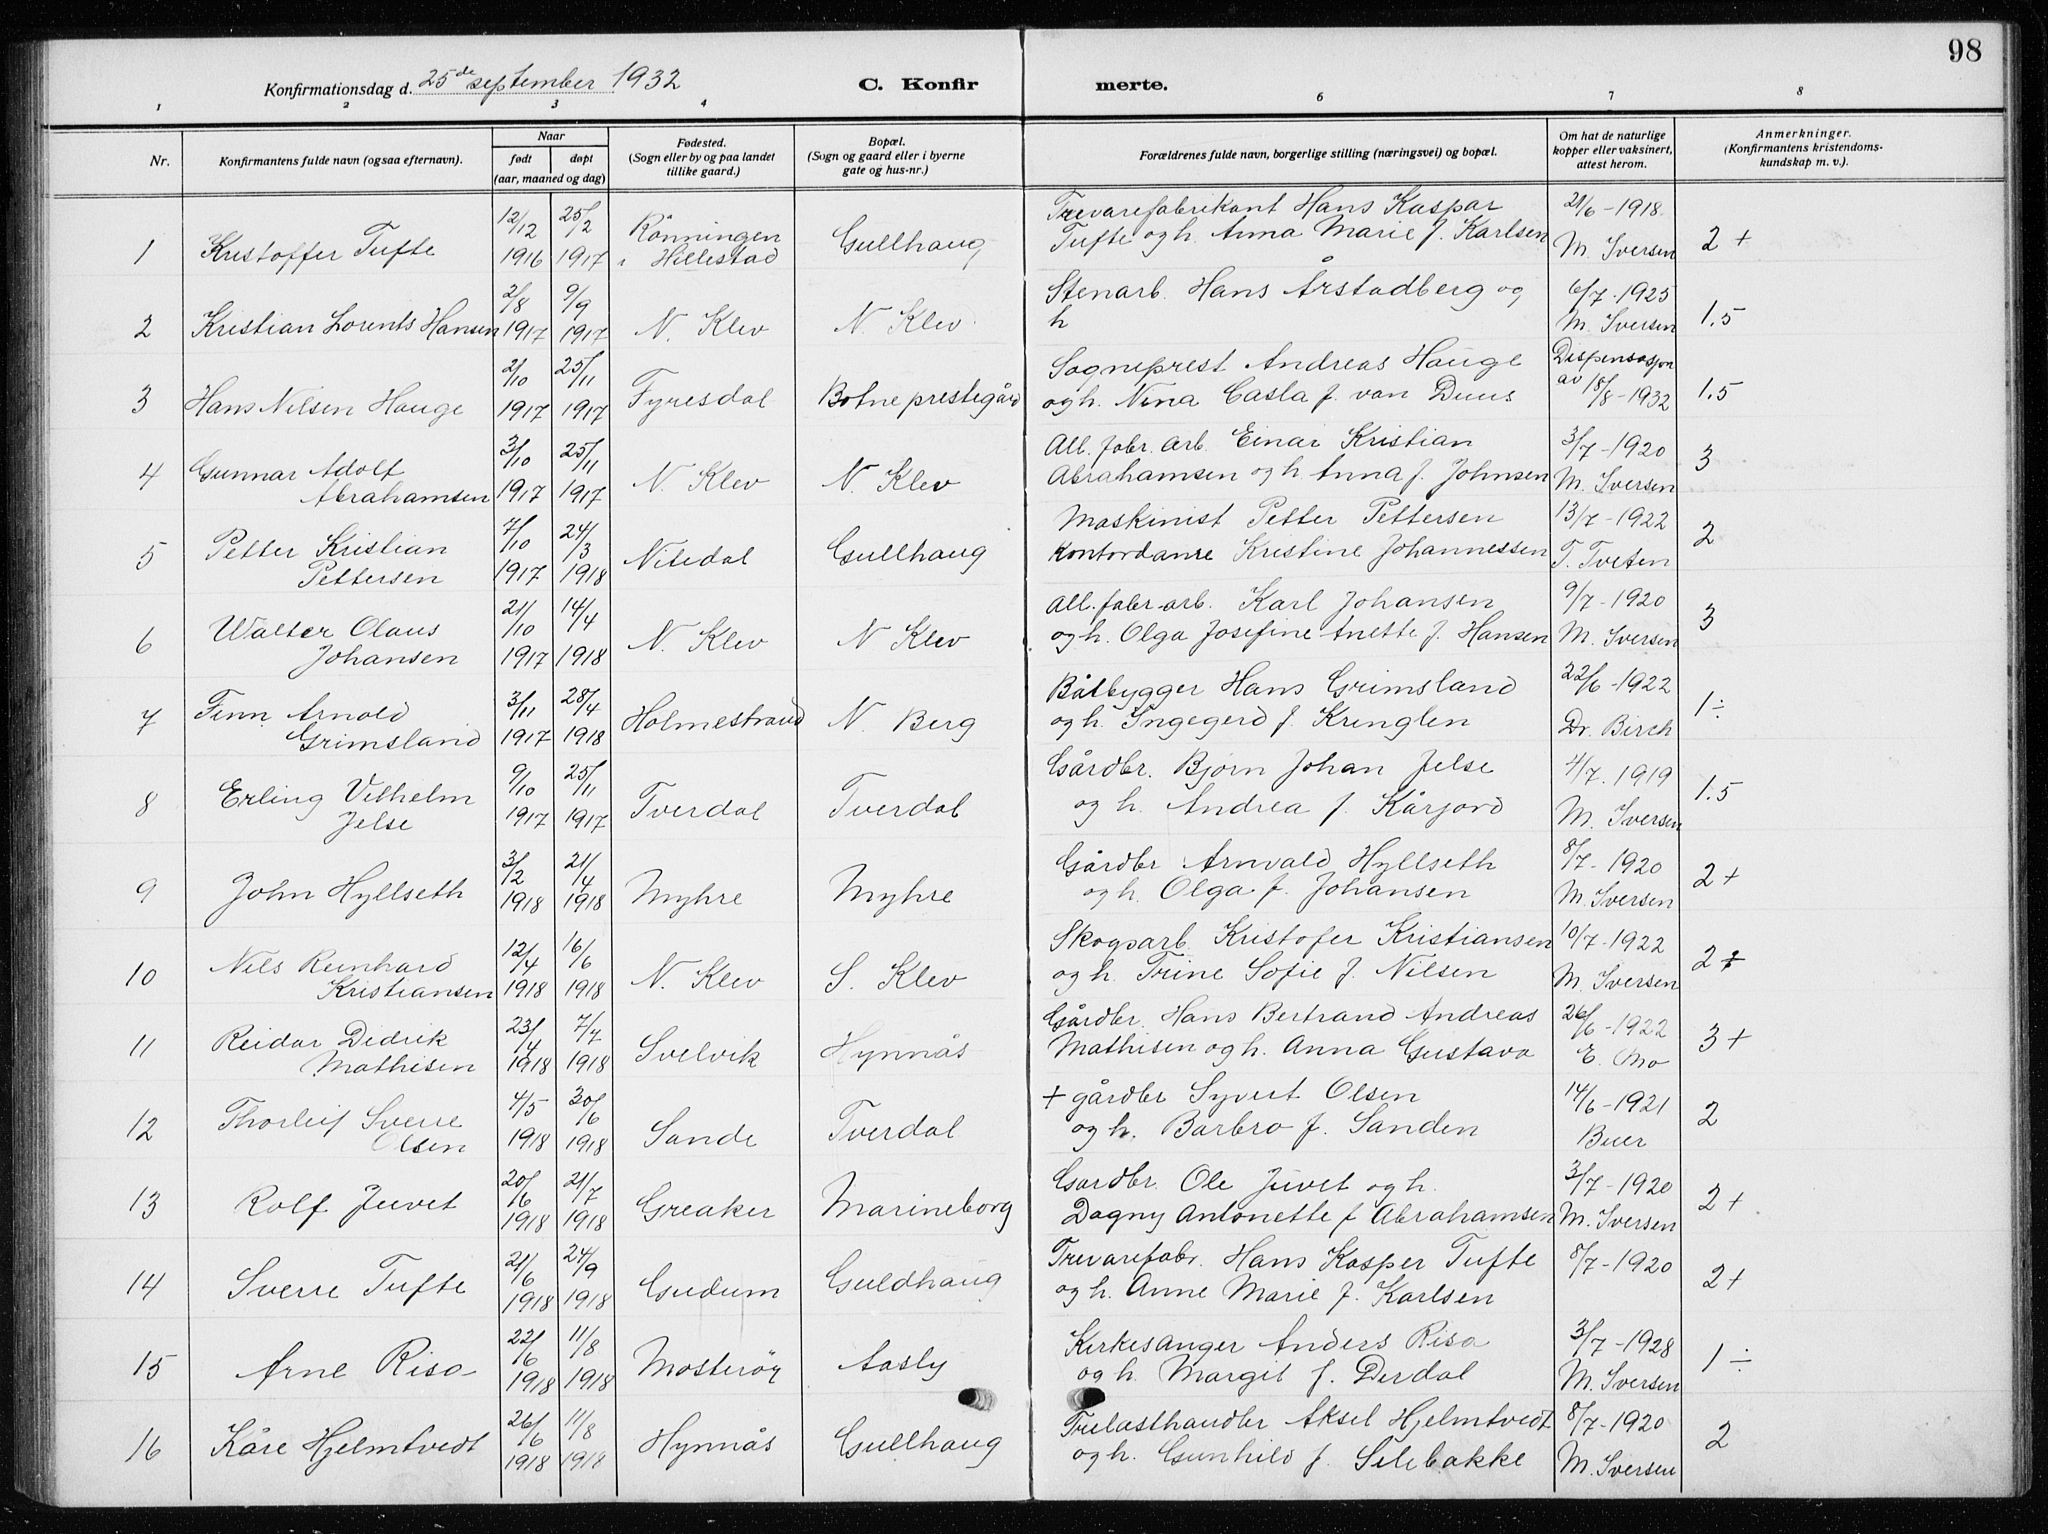 98
Konfirmationsdag d. 25de september 1932 C. Konfirmerte.
1 2 3 4 6 7 8
Nr. Konfirmantens fulde navn (ogsaa efternavn). Naar født døpt (aar, maaned og dag) Fødested. (Sogn eller by og paa landet tillike gaard.) Bopæl. (Sogn og gaard eller i byerne gate og hus-nr.) Forældrenes fulde navn, borgerlige stilling (næringsvei) og bopæl. Om hat de naturlige kopper eller vaksinert, attest herom. Anmerkninger. (Konfirmantens kristendomskundskap m. v.).
1 Kristoffer Tufte 12/12 1916 25/2 1917 Rönningen i Hillestad Gullhaug Trevarefabrikant Hans Kaspar Tufte og h. Anna Marie f. Karlsen 21/6-1918 M. Iversen 2+
2 Kristian Lorents Hansen 2/8 1917 9/9 1917 N. Klev N. Klev Stenarb. Hans Årstadberg og h 6/7-1925 M. Iversen 1.5
3 Hans Nilsen Hauge 2/10 1917 25/11 1917 Fyresdal Botne prestegård Sogneprest Andreas Hauge og h. Nina Casla f. van Duus Dispensasjon av 18/8-1932 1.5
4 Gunnar Adolf Abrahamsen 3/10 1917 25/11 1917 N. Klev N. Klev All. fabr. arb. Einar Kristian Abrahamsen og h. Anna f. Johnsen 3/7-1920 M. Iversen 3
5 Petter Kristian Pettersen 7/10 1917 24/3 1918 Nitedal Gullhaug Maskinist Petter Pettersen Kontordame Kristine Johannessen 13/7-1922 T. Tveten 2
6 Walter Olaus Johansen 21/10 1917 14/4 1918 N. Klev N Klev All. fabr. arb. Karl Johansen og h. Olga Josefine Anette f. Hansen 9/7-1920 M. Iversen 3
7 Finn Arnold Grimsland 3/11 1917 28/4 1918 Holmestrand N. Berg Båtbygger Hans Grimsland og h. Ingegerd f. Kringlen 22/6-1922 Dr. Birch 1÷
8 Erling Vilhelm Jelse 9/10 1917 25/11 1917 Tverdal Tverdal Gårdbr. Bjorn Johan Jelse og h. Andrea f. Kårjord 4/7.1919 M. Iversen 1.5
9 John Hyllseth 3/2 1918 21/4 1918 Myhre Myhre Gårdbr Arnvald Hyllseth og h. Olga f. Johansen 8/7-1920 M. Iversen 2+
10 Nils Reinhard Kristiansen 12/4 1918 16/6 1918 N. Klev S. Klev Skogsarb. Kristofer Kristiansen og h. Trine Sofie f. Nilsen 10/7-1922 M. Iversen 2+
11 Reidar Didrik Mathisen 23/4 1918 7/7 1918 Svelvik Hynnås Gårdbr. Hans Bertrand Andreas Mathisen og h. Anna Gustava 26/6-1922 E. Mo 3+
12 Thorleif Sverre Olsen 4/5 1918 30/6 1918 Sande Tverdal + gårdbr Syvert Olsen og h. Barbro f. Sanden 14/6-1921 Buer 2
13 Rolf Juvet 20/6 1918 21/7 1918 Greaker Marineborg Gardbr. Ole Juvet og h. Dagny Antonette f Abrahamsen 3/7-1920 M. Iversen 2+
14 Sverre Tufte 21/6 1918 24/9 1918 Gudum Guldhaug Trevarefabr. Hans Kasper Tufte og h. Anne Marie f. Karlsen 8/7-1920 2+
15 Arne Risa 22/6 1918 11/8 1918 Mosterøy Aasly Kirkesanger Anders Risa og h. Margit f. Dirdal 3/7-1928 M. Iversen 1÷
16 Kåre Hjelmtvedt 26/6 1918 11/8 1918 Hynnås Gullhaug Trelasthandler Aksel Hjelmtvedt og h. Gunhild f. Silibakke 8/7-1920 M. Iversen 2